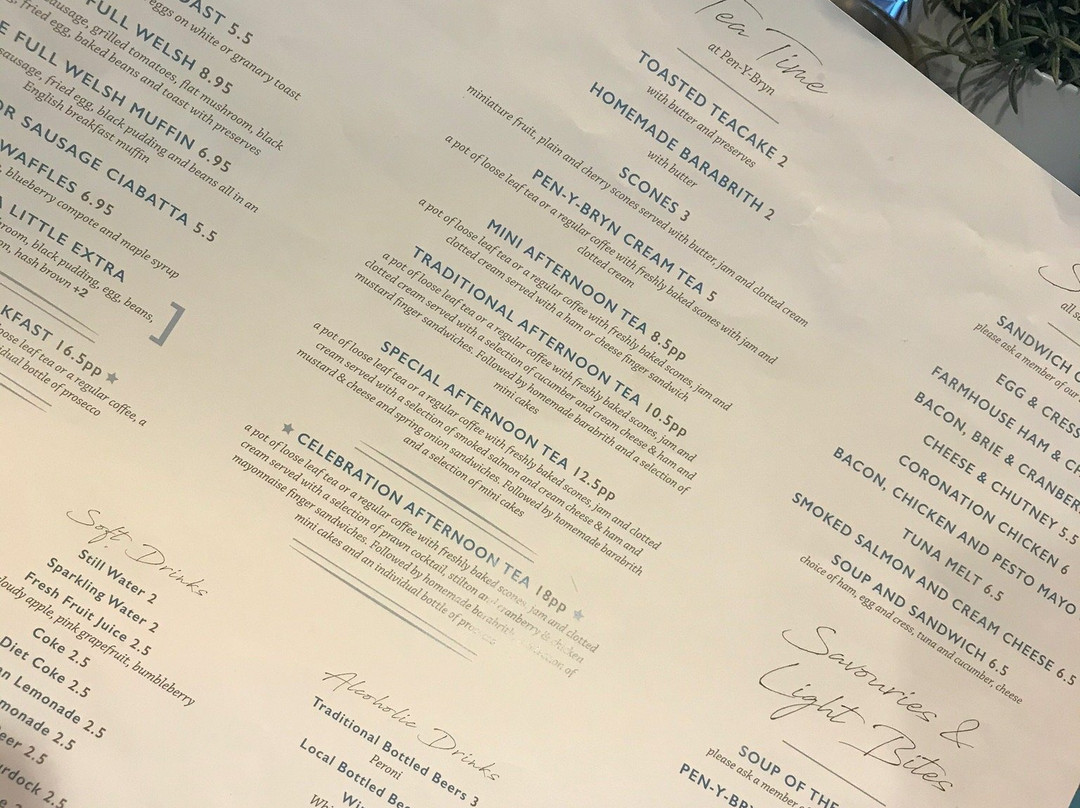 AST 5.5
eggs on white or granary toast
FULL WELSH 8.95
sausage, grilled tomatoes, flat mushroom, black
fried egg, baked beans and toast with preserves
FULL WELSH MUFFIN 6.95
sausage, fried egg, black pudding and beans all in an
English breakfast muffin
OR SAUSAGE CIABATTA 5.5
WAFFLES 6.95
blueberry compote and maple syrup
LITTLE EXTRA
room, black pudding, egg, beans,
hash brown +2
KFAST 16.5pp
loose leaf tea or a regular coffee, a
idual bottle of prosecco
Soft Drinks
Still Water 2
Sparkling Water 2
Fresh Fruit Juice 2.5
cloudy apple, pink grapefruit, bumbleberry
Coke 2.5
Diet Coke 2.5
an Lemonade 2.5
monade 2.5
Beer 2.5
urdock 2.5
Tea Time
at Pen-Y-Bryn
TOASTED TEACAKE 2
with butter and preserves
HOMEMADE BARABRITH 2
with butter
SCONES 3
miniature fruit, plain and cherry scones served with butter, jam and clotted cream
PEN-Y-BRYN CREAM TEA 5
a pot of loose leaf tea or a regular coffee with freshly baked scones with jam and
clotted cream
MINI AFTERNOON TEA 8.5pp
a pot of loose leaf tea or a regular coffee with freshly baked scones, jam and
clotted cream served with a ham or cheese finger sandwich
TRADITIONAL AFTERNOON TEA 10.5pp
a pot of loose leaf tea or a regular coffee with freshly baked scones, jam and
clotted cream served with a selection of cucumber and cream cheese & ham and
mustard finger sandwiches. Followed by homemade barabrith and a selection of
mini cakes
SPECIAL AFTERNOON TEA 12.5pp
a pot of loose leaf tea or a regular coffee with freshly baked scones, jam and clotted
cream served with a selection of smoked salmon and cream cheese & ham and
mustard & cheese and spring onion sandwiches. Followed by homemade barabrith
and a selection of mini cakes
CELEBRATION AFTERNOON TEA 18pp
a pot of loose leaf tea or a regular coffee with freshly baked scones, jam and clotted
cream served with a selection of prawn cocktail, stilton and cranberry & chicken
mayonnaise finger sandwiches. Followed by homemade barabrith and a selection of
mini cakes and an individual bottle of prosecco
Alcoholic Drinks
Traditional Bottled Beers 3
Peroni
Local Bottled Bee
Wi
Whi
all s
SANDWICH
please ask a member of our
EGG & CRESS
FARMHOUSE HAM & C
BACON, BRIE & CRANBER
CHEESE & CHUTNEY 5.5
CORONATION CHICKEN 6
BACON, CHICKEN AND PESTO MAYO
TUNA MELT 6.5
SMOKED SALMON AND CREAM CHEESE 6.5
SOUP AND SANDWICH 6.5
choice of ham, egg and cress, tuna and cucumber, cheese
Savouries &
Light Bites
SOUP OF THE
please ask a member of
PEN-Y-BRY